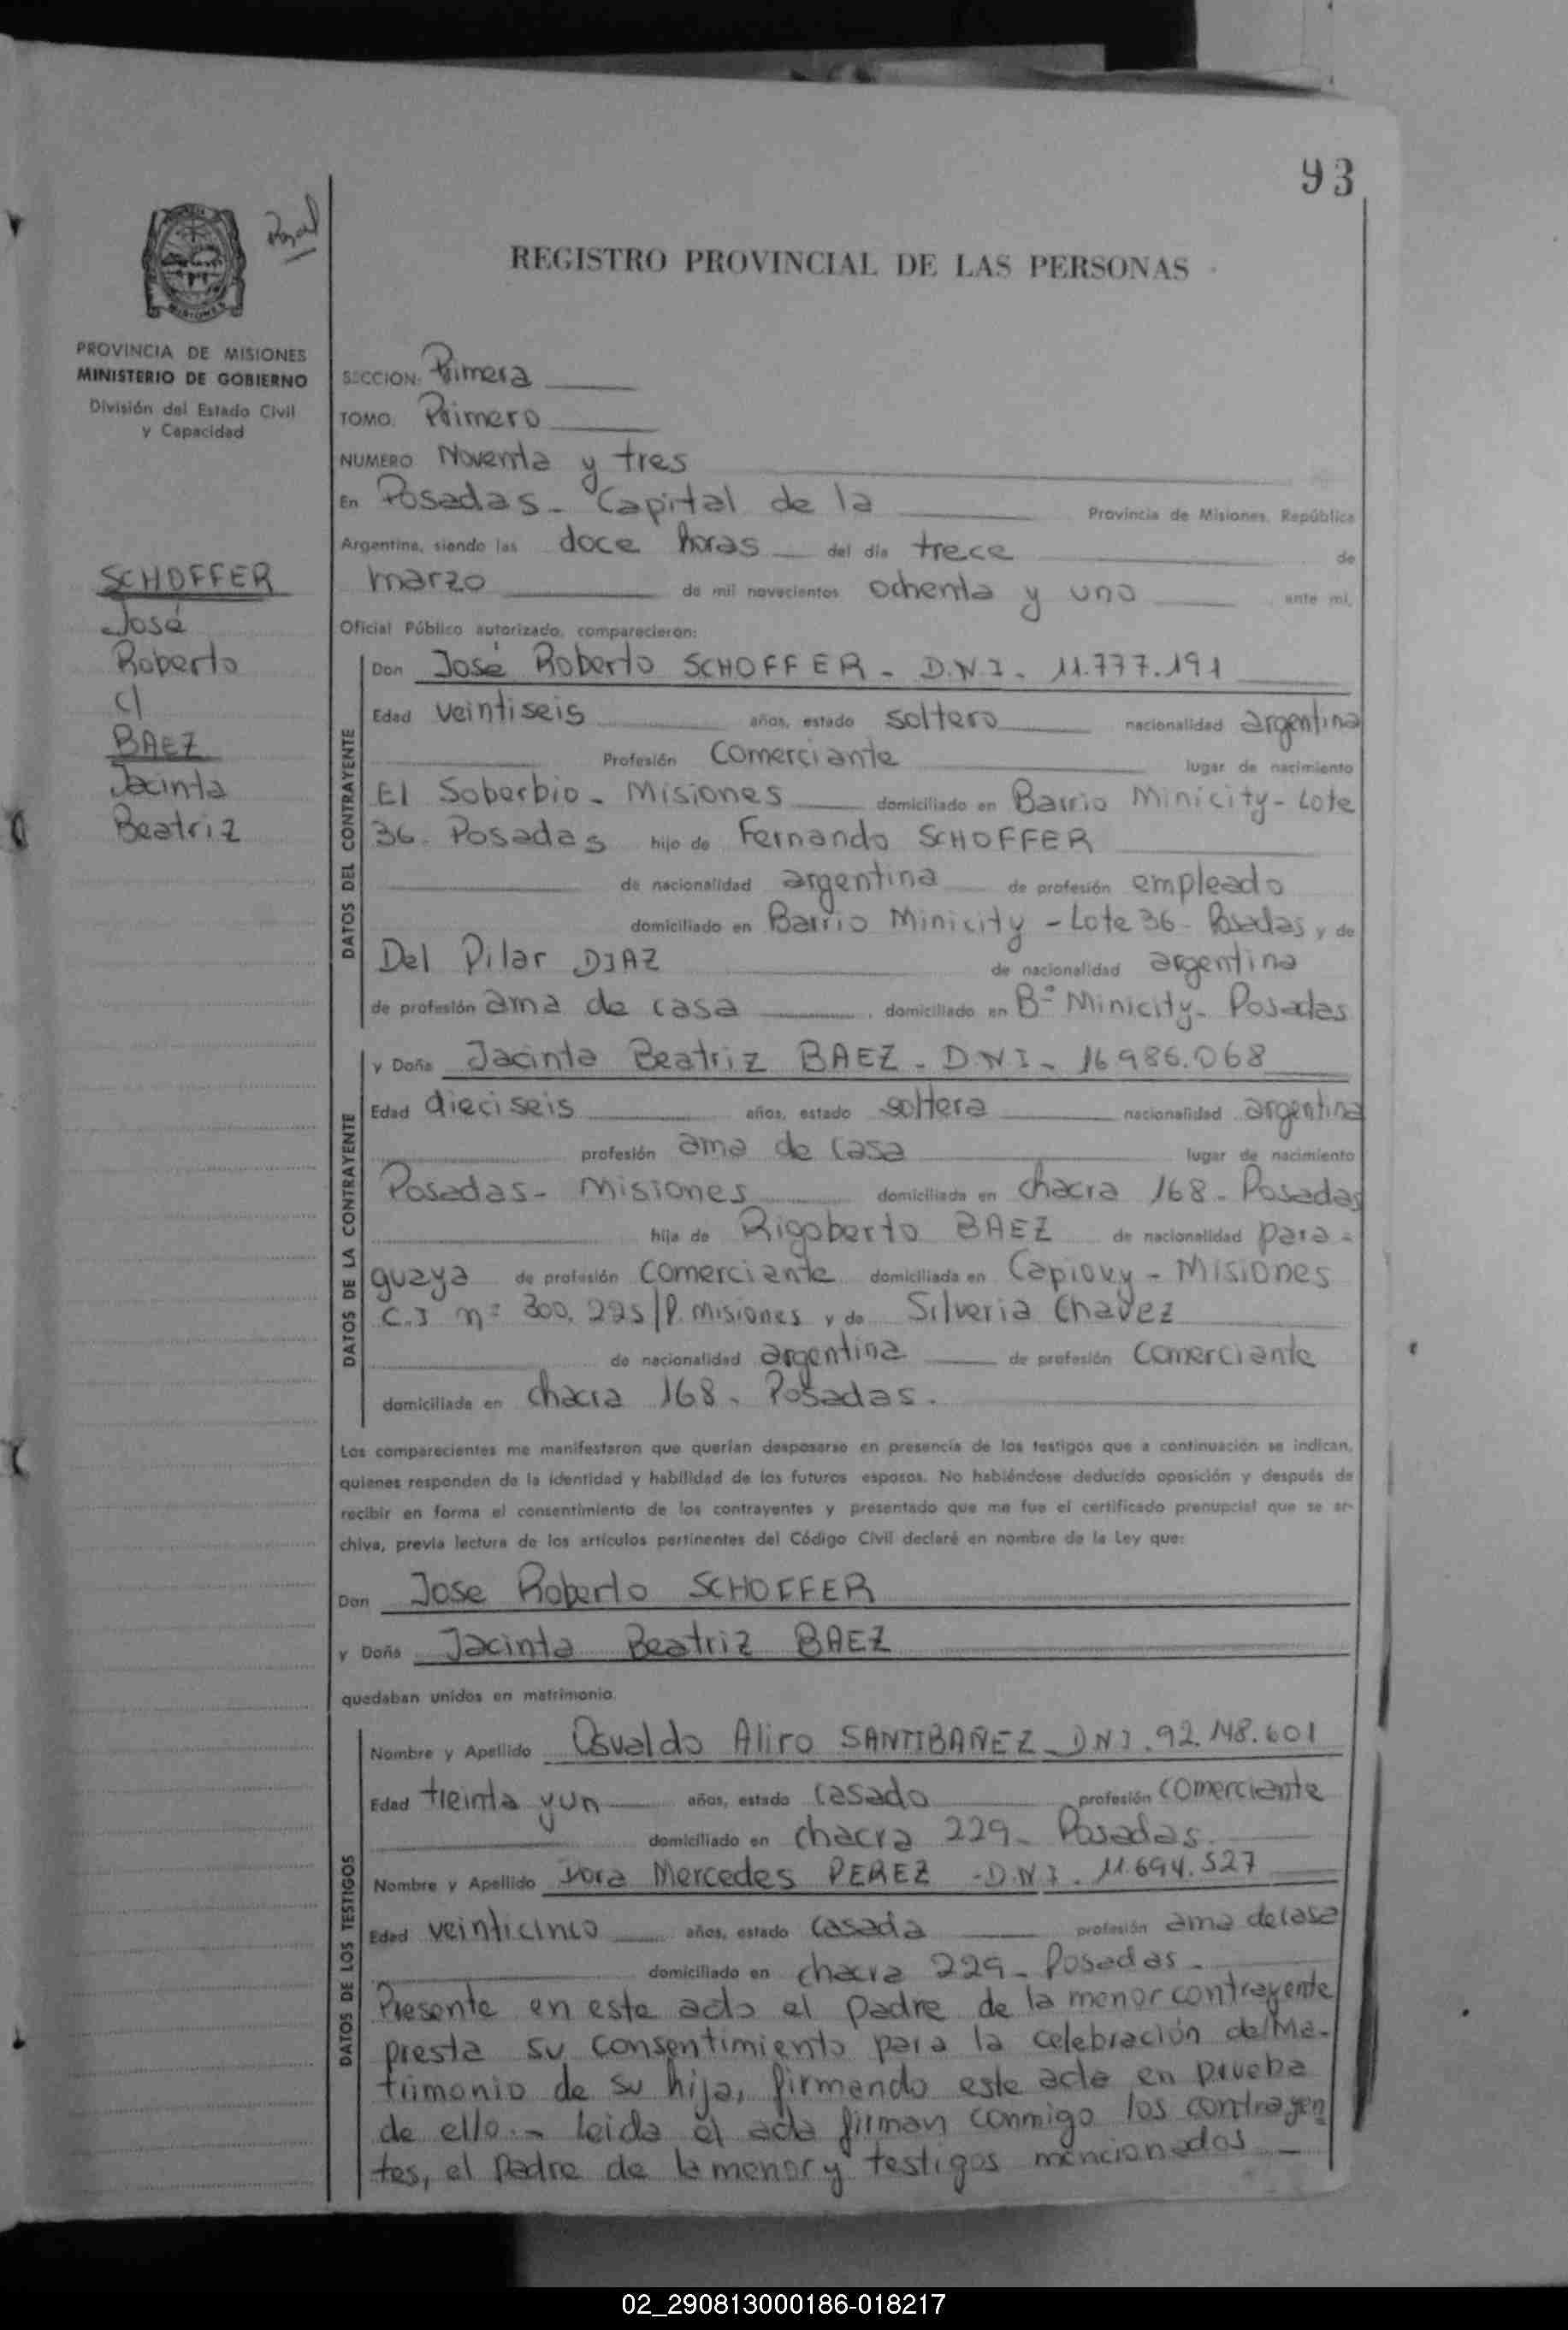 93
REGISTRO PROVINCIAL DE LAS PERSONAS
MISIONES
PROVINCIA DE MISIONES
MINISTERIO DE GOBIERNO
División del Estado Civil
y Capacidad
SCHOFFER
José
Roberto
c/
BAEZ
Jacinta
Beatriz
SECCION: Primera
TOMO: Primero
NUMERO Noventa y tres
En Posadas - Capital de la Provincia de Misiones, República
Argentina, siendo las doce horas del día trece de
marzo de mil novecientos ochenta y uno ante mí,
Oficial Público autorizado, comparecieron:
DATOS DEL CONTRAYENTE
Don José Roberto SCHOFFER - D.N.I - 11.777.191
Edad veintiseis años, estado soltero nacionalidad argentina
Profesión comerciante lugar de nacimiento
El Soberbio - Misiones domiciliado en Barrio Minicity - Lote
36 - Posadas hijo de Fernando SCHOFFER
de nacionalidad argentina de profesión empleado
domiciliado en Barrio Minicity - Lote 36 - Posadas y de
Del Pilar DIAZ de nacionalidad argentina
de profesión ama de casa domiciliado en B° Minicity - Posadas
DATOS DE LA CONTRAYENTE
y Doña Jacinta Beatriz BAEZ - D.N.I - 16.986.068
Edad dieciseis años, estado soltera nacionalidad argentina
profesión ama de casa lugar de nacimiento
Posadas - Misiones domiciliada en chacra 168 - Posadas
hija de Rigoberto BAEZ de nacionalidad para-
guaya de profesión comerciante domiciliada en Capiovy - Misiones
C.I n° 300.225/P. Misiones y de Silveria Chavez
de nacionalidad argentina de profesión comerciante
domiciliada en chacra 168 - Posadas.
Los comparecientes me manifestaron que querían desposarse en presencia de los testigos que a continuación se indican,
quienes responden de la identidad y habilidad de los futuros esposos. No habiéndose deducido oposición y después de
recibir en forma el consentimiento de los contrayentes y presentado que me fue el certificado prenupcial que se ar-
chiva, previa lectura de los artículos pertinentes del Código Civil declaré en nombre de la Ley que:
Don Jose Roberto SCHOFFER
y Doña Jacinta Beatriz BAEZ
quedaban unidos en matrimonio.
DATOS DE LOS TESTIGOS
Nombre y Apellido Osvaldo Aliro SANTIBAÑEZ - DNI. 92.148.601
Edad treinta y un años, estado casado profesión comerciante
domiciliado en chacra 229 - Posadas.
Nombre y Apellido Dora Mercedes PEREZ - D.N.I. 11.694.527
Edad veinticinco años, estado casada profesión ama de casa
domiciliado en chacra 229 - Posadas -
Presente en este acto el padre de la menor contrayente
presta su consentimiento para la celebración del Ma-
trimonio de su hija, firmando este acta en prueba
de ello.- Leida el acta firman conmigo los contrayen
tes, el padre de la menor y testigos mencionados -
02_290813000186-018217